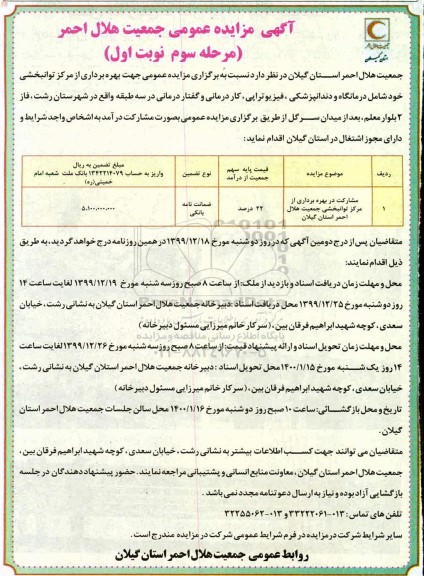 آگهی مزایده عمومی جمعیت هلال احمر
(مرحله سوم نوبت اول)
جمعیت هلال احمر استان گیلان در نظر دارد نسبت به برگزاری مزایده عمومی جهت بهره برداری از مرکز توانبخشی
خود شامل درمانگاه و دندانپزشکی ، فیزیوتراپی ، کار درمانی و گفتار درمانی در سه طبقه واقع در شهرستان رشت ، فاز
۲ بلوار معلم ، بعد از میدان سرگل از طریق برگزاری مزایده عمومی بصورت مشارکت در آمد به اشخاص واجد شرایط و
دارای مجوز اشتغال در استان گیلان اقدام نماید:
ردیف موضوع مزایده قیمت پایه سهم جمعیت از درآمد نوع تضمین مبلغ تضمین به ریال واریز به حساب ۱۳۴۲۲۱۴۰۷۹ بانک ملت شعبه امام خمینی(ره)
۱ مشارکت در بهره برداری از مرکز توانبخشی جمعیت هلال احمر استان گیلان ۲۲ درصد ضمانت نامه بانکی ۵،۱۰۰،۰۰۰،۰۰۰
متقاضیان پس از درج دومین آگهی که در روز دوشنبه مورخ ۱۳۹۹/۱۲/۱۸ در همین روزنامه درج خواهد گردید، به طریق
ذیل اقدام نمایند:
محل و مهلت زمان دریافت اسناد و بازدید از ملک: از ساعت ۸ صبح روز سه شنبه مورخ ۱۳۹۹/۱۲/۱۹ لغایت ساعت ۱۴
روز دوشنبه مورخ ۱۳۹۹/۱۲/۲۵ محل دریافت اسناد : دبیرخانه جمعیت هلال احمر استان گیلان به نشانی رشت ، خیابان
سعدی ، کوچه شهید ابراهیم فرقان بین ، (سرکار خانم میرزایی مسئول دبیرخانه)
محل و مهلت زمان تحویل اسناد و ارائه پیشنهاد قیمت: از ساعت ۸ صبح روز سه شنبه مورخ ۱۳۹۹/۱۲/۲۶ لغایت ساعت
۱۴ روز یک شنبه مورخ ۱۴۰۰/۱/۱۵ محل تحویل اسناد : دبیرخانه جمعیت هلال احمر استان گیلان به نشانی رشت ،
خیابان سعدی ، کوچه شهید ابراهیم فرقان بین ، (سرکار خانم میرزایی مسئول دبیرخانه)
تاریخ و محل بازگشائی: ساعت ۱۰ صبح روز دوشنبه مورخ ۱۴۰۰/۱/۱۶ محل سالن جلسات جمعیت هلال احمر استان
گیلان.
متقاضیان می توانند جهت کسب اطلاعات بیشتر به نشانی رشت ، خیابان سعدی ، کوچه شهید ابراهیم فرقان بین ،
جمعیت هلال احمر استان گیلان ، معاونت منابع انسانی و پشتیبانی مراجعه نمایند. حضور پیشنهاد دهندگان در جلسه
بازگشایی آزاد بوده و نیاز به ارسال دعوتنامه مجدد نمی باشد .
تلفن های تماس: ۰۱۳-۳۳۲۲۲۰۶۱ و ۰۱۳-۳۲۲۵۵۰۶۲
سایر شرایط شرکت در مزایده در فرم شرایط عمومی شرکت در مزایده مندرج است.
روابط عمومی جمعیت هلال احمر استان گیلان